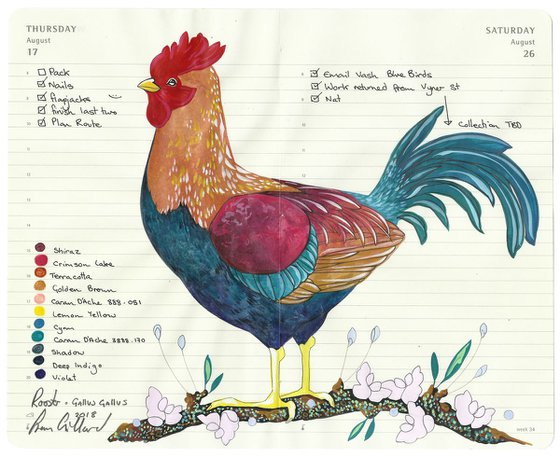 THURSDAY
August
17
Pack
Nails
flapjacks
finish last two
Plan Route
SATURDAY
August
26
Email Vash Blue Birds
Work returned from Vyner St
Nat
Collection TBD
Shiraz
Crimson Lake
Terracotta
Golden Brown
Caran D'Ache 888.081
Lemon Yellow
Cyan
Caran D'Ache 3888.170
Shadow
Deep indigo
Violet
Rooster - Gallus Gallus
2018
week 34